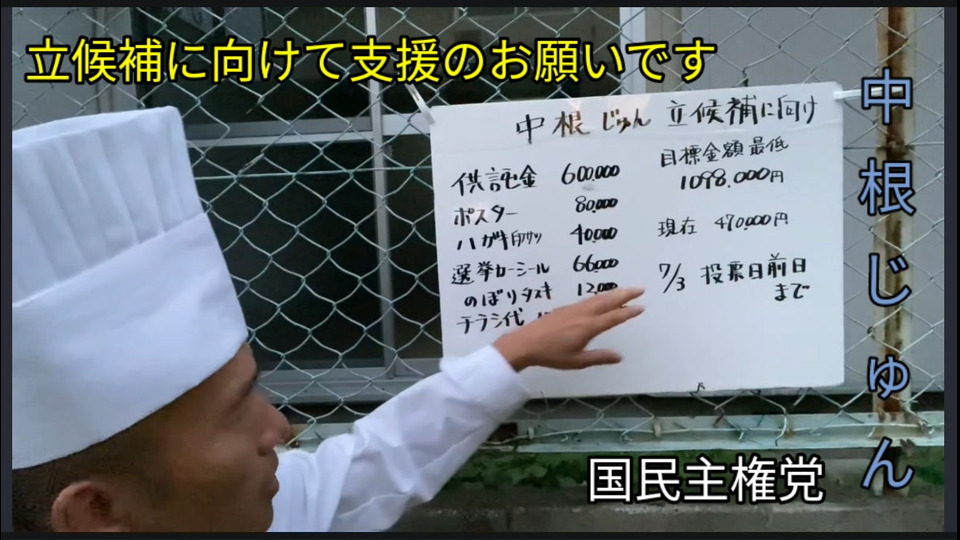 立候補に向けて支援のお願いです
中根じゅん 立候補に向け
供託金 600,000
ポスター 80,000
ハガキ印サツ 40,000
選挙カーシール 66,000
のぼりタスキ
チラシ代
目標金額最低
1098.000円
現在 470,000円
7/3 投票日前日
まで
中根じゅん
国民主権党